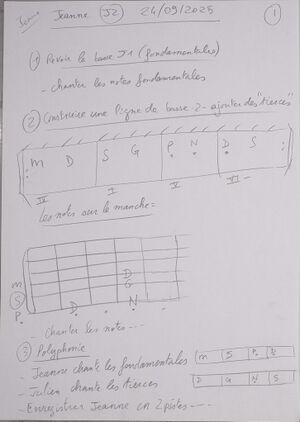 Jeanne J2 24/09/2025 1
① Revoir la basse J1 (fondamentales)
- chanter les notes fondamentales
② Construire une ligne de basse 2 - ajouter des "tierces"
m D S G P N D S
IV I V VI -
Les notes sur le manche =
m
S D
G
P. D N
- Chanter les notes ---
③ Polyphonie
- Jeanne chante les fondamentales m S P N
- Julien chante les tierces D G N S
- Enregistrer Jeanne en 2 pistes ---